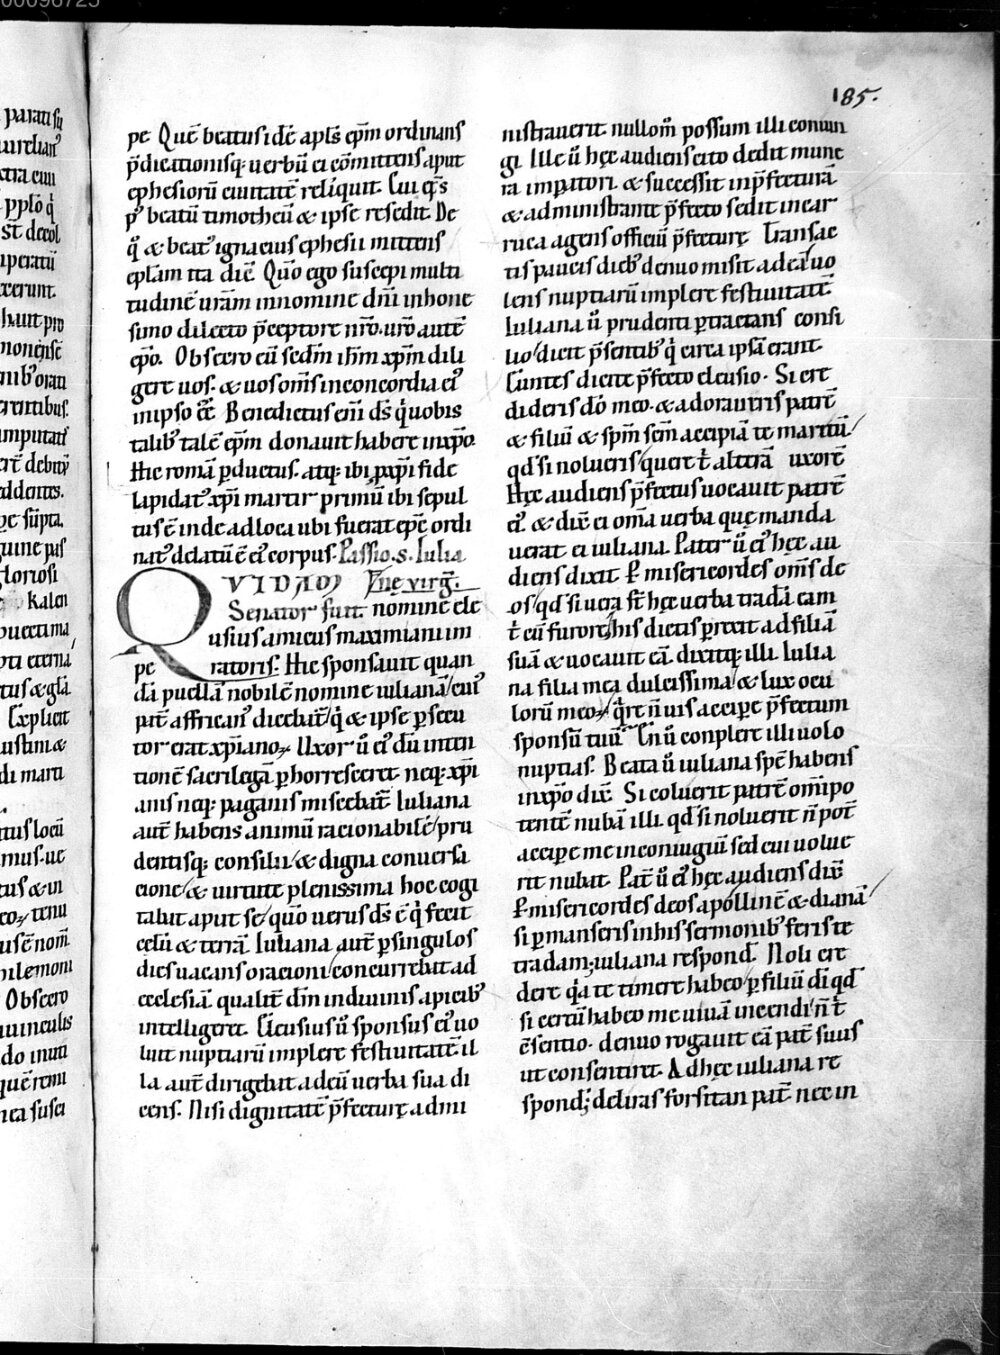 00098725
185.
paran su
aurelian᾽
xtra ciui
pplō q̇
st̄ decol
uperatū
xerunt.
haut pro
nonēsē
nib᾽ oran
crentibus.
imputati
debitȳ
eddentes.
sūpta.
guine pas
gloriosi
kalen
eterna
tus & glā
Explicit
iustini &
di marti
tus locū
mus. ue
tus & in
tenu
usē nom̄
nilemoni
Obsecro
uinculis
do inuti
quē remi
nea susci
pe Quē beatus idē apl̄s ep̄m ordinans
p̄dicationisq; uerbū ei cōmittens aput
ephesiorū ciuitatē reliquit. Cui ep̄s
p᾽ beatū timotheū & ipse resedit. De
q̇̄ & beat᾽ ignacius ephesii mittens
ep̄lam ita dic̄. Quō ego suscepi multi
tudinē urām in nomine dn̄i in hone
simo dilecto p̄ceptore nr̄o. uro autē
ep̄o. Obsecro eū sedm̄ ih̄m xp̄m dili
gere uos. & uos om̄s in concordia ei᾽
in ipso eē. Benedictus eni ds̄ q̇ uobis
talib᾽ talē ep̄m donauit habere in xp̄o.
Hic romā p̄ductus. atq; ibi p̄ xp̄i fide
lapidat᾽ xp̄i martir primū ibi sepul
tus ē inde ad loca ubi fuerat ep̄c ordi
nat᾽ delatū ē ei᾽ corpus. Passio. s. Iulia
QVIDAM Ene virg̅.
Senator fuit nomine ele
usius amicus maximiani im
pe ratoris. Hic sponsauit quan
dā puellā nobilē nomine iulianā / cui᾽
pat̄ affrican᾽ dicebat̄ / q̇ & ipse persecu
tor erat xp̄iano℞. Uxor ū ei᾽ dū inten
tionē sacrilegā phorresceret. neq; xp̄i
anis neq; paganis miscebat̄. Iuliana
aut̄ habens animū racionabilē / pru
dentisq; consilii / & digna conuersa
cione / & uirtute plenissima hoc cogi
tabat aput se / quō uerus ds̄ ē q̇ fecit
celū & terrā. Iuliana aut̄ p singulos
dies uacans oracioni / concurrebat ad
ecclesiā qualit̄ dm̄ in diuinis apicib᾽
intelligeret. Eleusius ū sponsus ei᾽ uo
luit nuptiarū implere festiuitatē. il
la aut̄ dirigebat ad eū uerba sua di
cens. Nisi dignitatē p̄fecturę admi
nistrauerit nullom̄ possum illi coniun
gi. Ille ū hęc audiens cito dedit mune
ra imp̄atori. & successit in p̄fecturā
& administrante p̄fecto sedit in car
ruca agens officiū p̄fecturę. Transac
tis paucis dieb᾽ denuo misit ad eā / uo
lens nuptiarū implere festiuitatē.
Iuliana ū prudenti p̄tractans consi
lio / dicit p̄sentib᾽ q̇ circa ipsā erant.
Euntes dicite p̄fecto eleusio. Si cre
dideris dō meo. & adoraueris patrē
& filiū & sp̄m scm̄ accipiā te maritū /
qd̄ si nolueris / quere t᾽ alterā uxorē
Hęc audiens p̄fectus uocauit patrē
ei᾽. & dix̄ ei om̄ia uerba quę manda
uerat ei iuliana. Pater ū ei᾽ hęc au
diens dixit. P̄ misericordes om̄s de
os / qd̄ si uera st̄ hęc uerba tradā eam
t᾽ eū furore / his dictis prexit ad filiā
suā & uocauit eā. dixitq; illi. Iulia
na filia mea dulcissima / & lux ocu
lorū meo℞ / q̄re n̄ uis accipe p̄fectum
sponsū tuū. En ū conplere illi uolo
nuptias. Beata ū iuliana spē habens
in xp̄o dix̄. Si coluerit patrē om̄ipo
tentē nubā illi. qd̄ si noluerit n̄ pot̄
accipe me in coniugiū sed cui uolue
rit nubat. Pat̄ ū ei᾽ hęc audiens dix̄.
P̄ misericordes deos apollinē & dianā /
si pmanseris in his sermonib᾽ feris te
tradam; iuliana respond̄. Noli cre
dere q̇a te timere habeo / p filiū dī qd̄
si certū habeo me uiuā incendi / n̄ t᾽
c̄sentio. denuo rogauit eā pat̄ suus
ut consentiret. Ad hęc iuliana re
spond̄; deliras forsitan pat̄. nec in